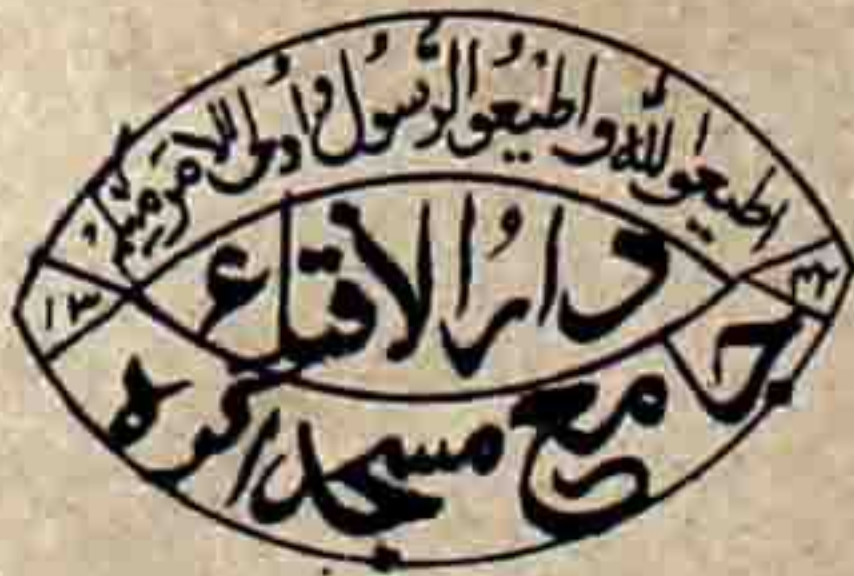 اطیعوالله واطیعوالرسول واولی الامر منکم
دارالافتاء
۱۳
۴۲
جامع مسجد آگرہ